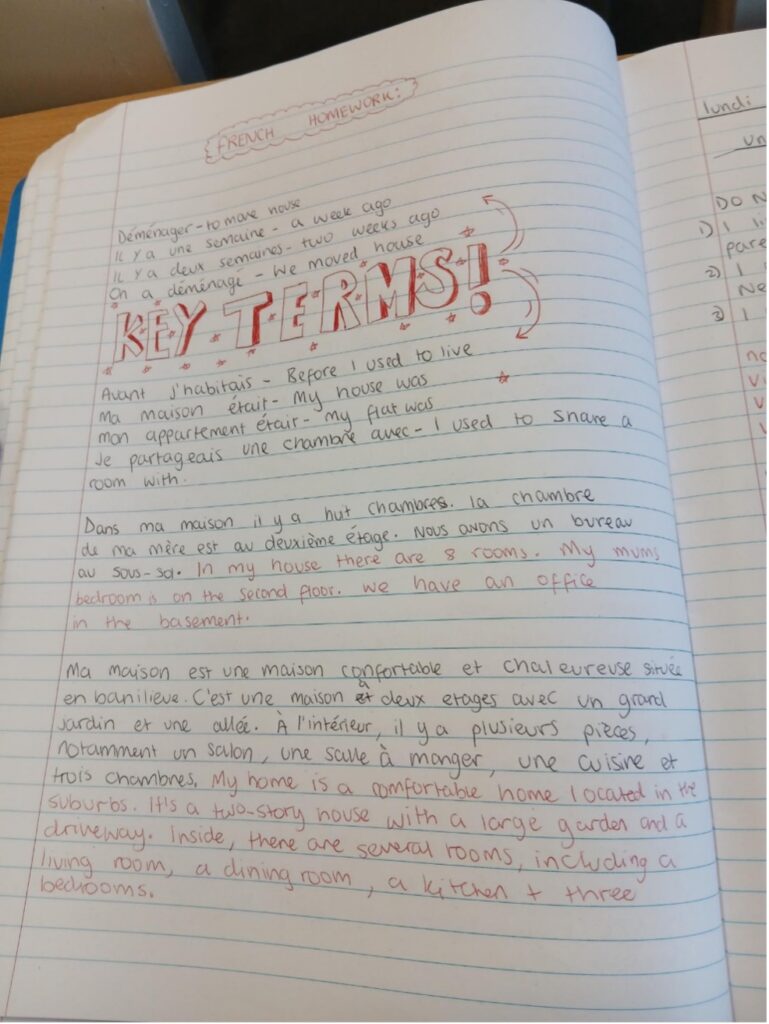 FRENCH HOMEWORK:
Déménager - to move house
Il y a une semaine - a week ago
Il y a deux semaines - two weeks ago
On a déménagé - We moved house
KEY TERMS!
Avant j'habitais - Before I used to live
Ma maison était - My house was
mon appartement étair - my flat was
Je partageais une chambre avec - I used to share a
room with.
Dans ma maison il y a huit chambres. la chambre
de ma mère est au deuxième étage. Nous avons un bureau
au sous-sol. In my house there are 8 rooms. My mums
bedroom is on the second floor. we have an office
in the basement.
Ma maison est une maison confortable et chaleureuse située
en banilieve. C'est une maison à deux etages avec un grand
jardin et une allée. À l'intérieur, il y a plusieurs pièces,
notamment un salon, une salle à manger, une cuisine et
trois chambres. My home is a comfortable home located in the
suburbs. It's a two-story house with a large garden and a
driveway. Inside, there are several rooms, including a
living room, a dining room, a kitchen + three
bedrooms.
lundi
un
DO N
1) I li
pare
2) I
Ne
3) I